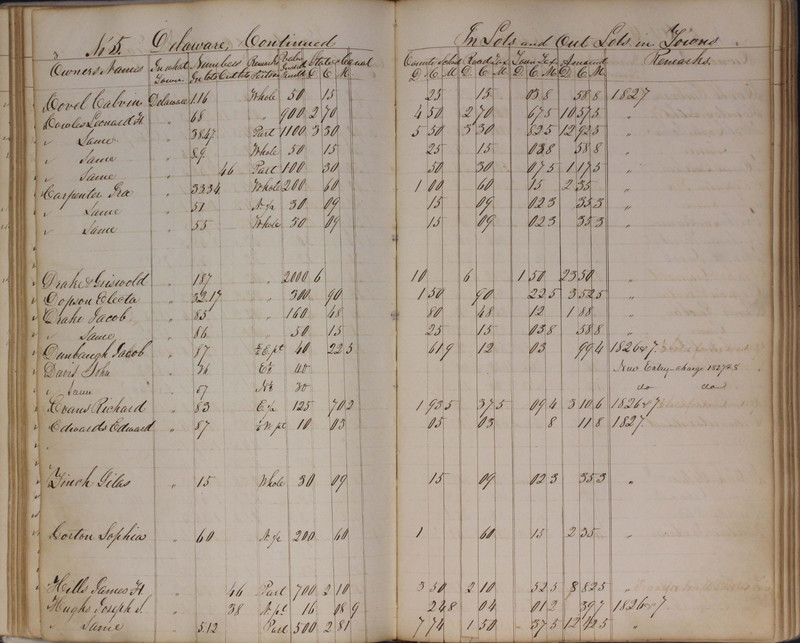 No 5 Delaware, Continued In Lots and Out Lots in Towns
Owners Names In what Town Numbers In Lots Out Lots State & Canal D C M D C M Road Tax D C M Town Tax D C M Amount D C M Remarks.
Covel Calvin Delaware 116 Whole 50 15 25 15 03 8 58 8 1827
Cowles Leonard H. " 68 " 900 2 70 4 50 2 70 6 75 10 57 5 "
" Same " 38.47 Part 1100 3 30 5 50 3 30 8 25 12 92 5 "
" Same " 89 Whole 50 15 25 15 03 8 58 8 "
" Same " 46 Part 100 30 50 30 07 5 1 17 5 "
Carpenter Ira " 33.34 Whole 200 60 1 00 60 15 2 35 "
" Same " 51 N. ½ 30 09 15 09 02 3 35 3 "
" Same " 55 Whole 30 09 15 09 02 3 35 3 "
Drake & Griswold " 187 " 2000 6 10 6 1 50 23 50 "
Dopson Electa " 32.17 " 300 90 1 50 90 22 5 3 52 5 "
Drake Jacob " 85 " 160 48 80 48 12 1 88 "
" Same " 86 " 50 15 25 15 03 8 58 8 "
Dunbaugh Jacob " 87 E. pt 40 22 3 61 9 12 03 99 4 1826 & 7
Davis John " 36 40 New Entry charge 1827 & 8
" Same " 57 30 do do
Evans Richard " 83 E ½ 125 70 3 1 93 5 37 5 09 4 3 10 6 1826 & 7
Edwards Edward " 87 pt 10 03 05 03 8 11 8 1827
Finch Giles " 15 Whole 30 09 15 09 02 3 35 3 "
Gorton Sophia " 60 N. ½ 200 60 1 60 15 2 35 "
Hills James H. " 46 Part 700 2 10 3 50 2 10 52 5 8 82 5 "
Hughs Joseph S. " 38 N. pt 16 08 9 24 8 04 01 2 39 7 1826 & 7
" Same " 5.12 Part 500 2 81 7 74 1 50 37 5 12 42 5 "